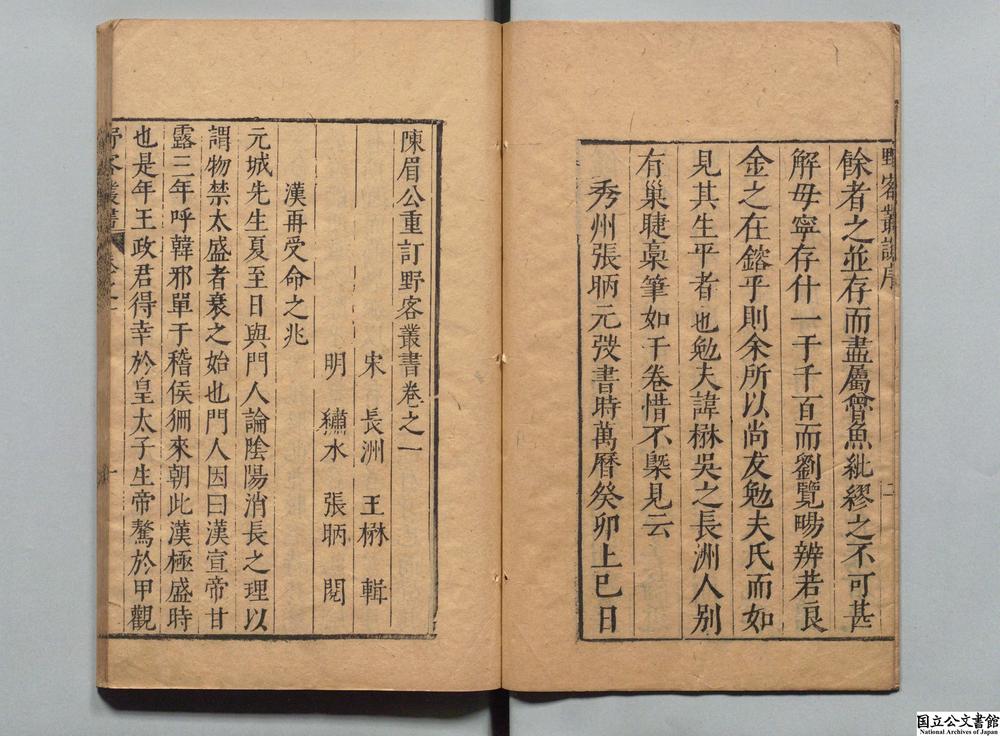 野客叢書序
二
餘者之並存而盡屬魯魚紕繆之不可甚
解毋寧存什一于千百而劉覽暘辨若良
金之在鎔乎則余所以尚友勉夫氏而如
見其生平者也勉夫諱楙吳之長洲人别
有巢睫稾筆如干卷惜不槩見云
秀州張昞元弢書時萬曆癸卯上巳日
陳眉公重訂野客叢書卷之一
宋 長洲 王楙 輯
明 繡水 張昞 閱
漢再受命之兆
元城先生夏至日與門人論陰陽消長之理以
謂物禁太盛者衰之始也門人因曰漢宣帝甘
露三年呼韓邪單于稽侯狦來朝此漢極盛時
也是年王政君得幸於皇太子生帝驁於甲觀
野客叢書 卷之一
国立公文書館
National Archives of Japan